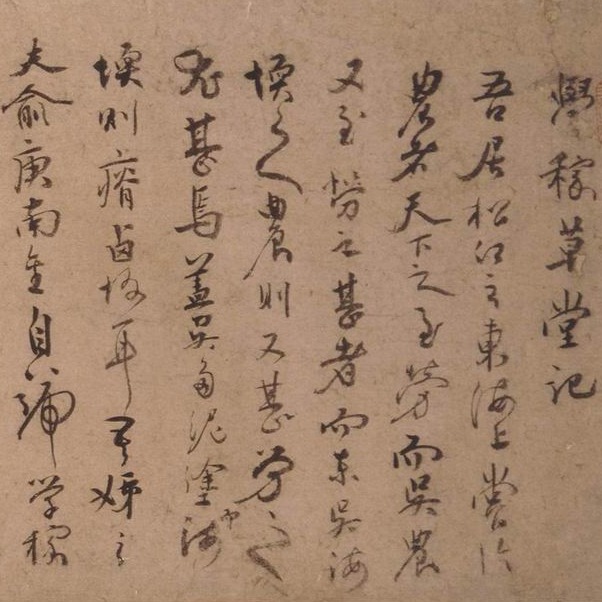 學稼草堂記
吾居松江之東海上嘗
農者天下之至勞而吳農
又至勞之甚者而東吳海
壖之人農則又甚勞之
尤甚焉蓋吳多泥塗海
壖則瘠鹵耳吾姊之
夫俞庚南金自號学稼